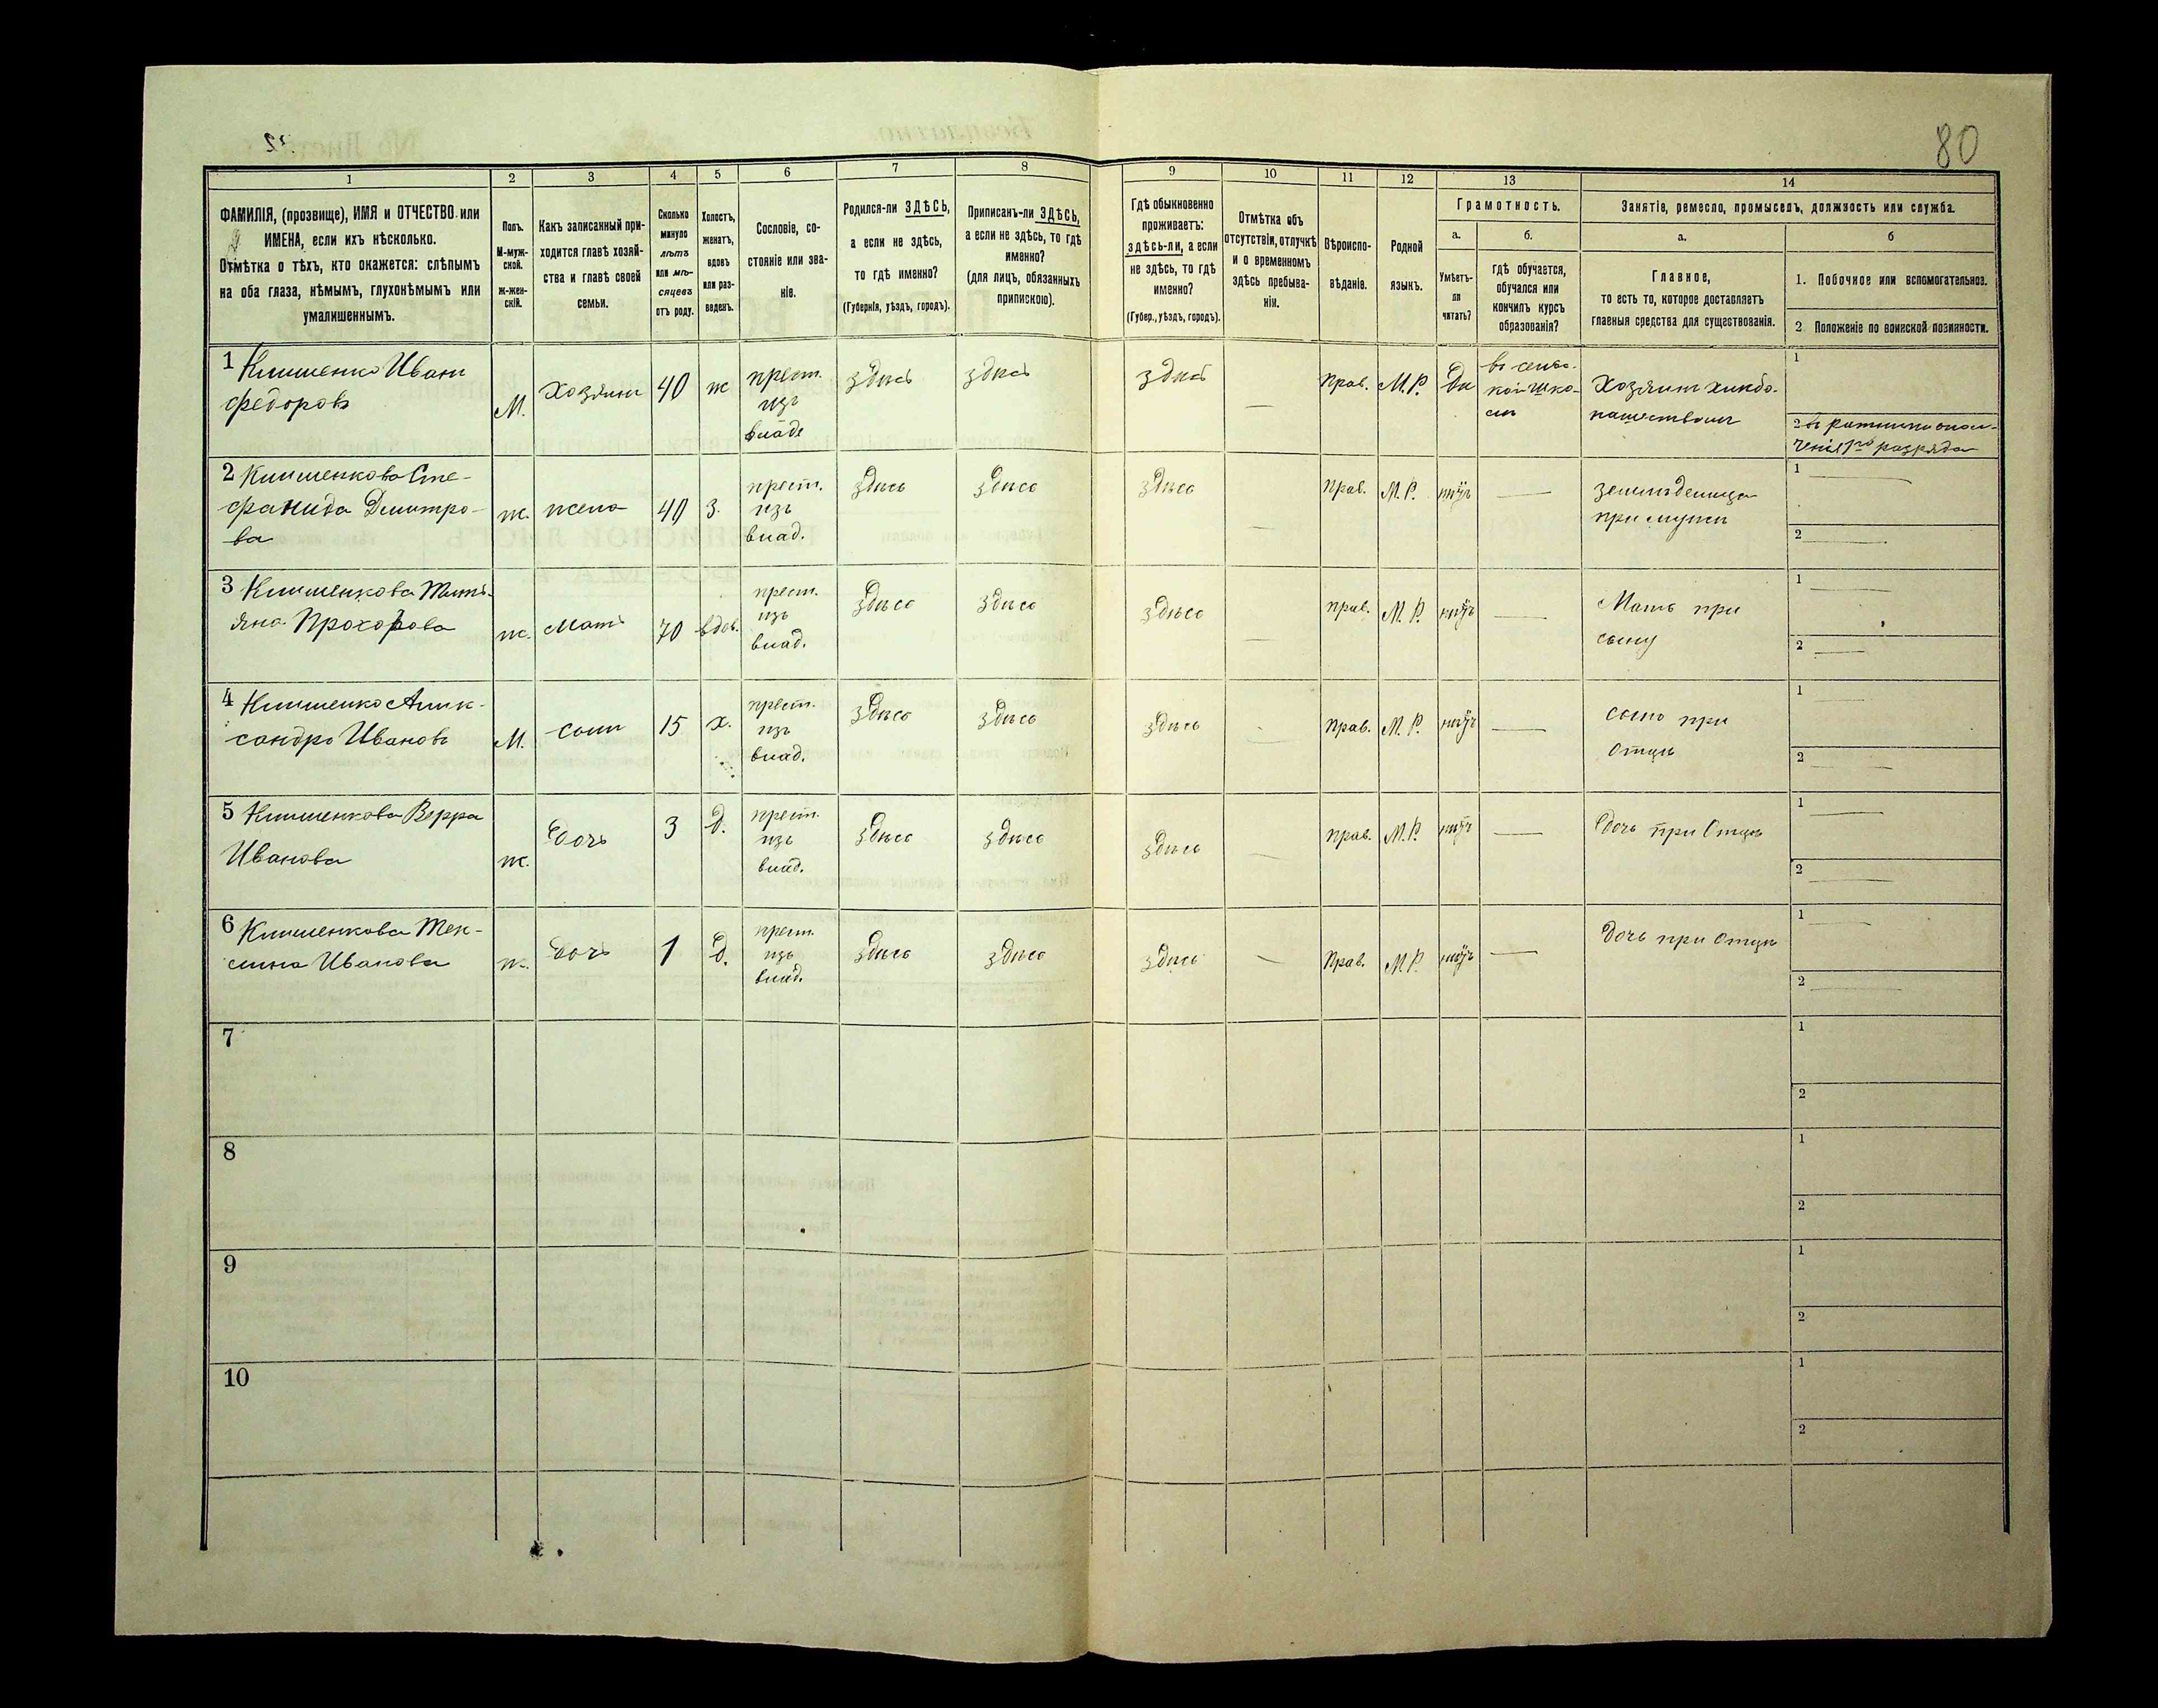 80
1 2 3 4 5 6 7 8 9 10 11 12 13 14
ФАМИЛІЯ, (прозвище), ИМЯ и ОТЧЕСТВО или
ИМЕНА, если ихъ нѣсколько.
Отмѣтка о тѣхъ, кто окажется: слѣпымъ
на оба глаза, нѣмымъ, глухонѣмымъ или
умалишеннымъ.
Полъ.
М-муж-
ской.
Ж-жен-
скій.
Какъ записанный при-
ходится главѣ хозяй-
ства и главѣ своей
семьи.
Сколько
минуло
лѣтъ
или мѣ-
сяцевъ
отъ роду.
Холостъ,
женатъ,
вдовъ
или раз-
веденъ.
Сословіе, со-
стояніе или зва-
ніе.
Родился-ли ЗДѢСЬ,
а если не здѣсь,
то гдѣ именно?
(Губернія, уѣздъ, городъ).
Приписанъ-ли ЗДѢСЬ,
а если не здѣсь, то гдѣ
именно?
(для лицъ, обязанныхъ
припискою).
Гдѣ обыкновенно
проживаетъ:
здѣсь-ли, а если
не здѣсь, то гдѣ
именно?
(Губер., уѣздъ, городъ).
Отмѣтка объ
отсутствіи, отлучкѣ
и о временномъ
здѣсь пребыва-
ніи.
Вѣроиспо-
вѣданіе.
Родной
языкъ.
Грамотность.
а.
Умѣетъ-
ли
читать?
б.
гдѣ обучается,
обучался или
кончилъ курсъ
образованія?
Занятіе, ремесло, промыселъ, должность или служба.
а.
Главное,
то есть то, которое доставляетъ
главныя средства для существованія.
б
1. Побочное или вспомогательное.
2 Положеніе по воинской повинности.
1 Клименко Иванъ
Федоровъ
М.
Хозяинъ
40
ж
крест.
изъ
влад.
здѣсь
здѣсь
здѣсь
—
Прав.
М.Р.
Да
въ сель-
кой шко-
лѣ
Хозяинъ хлѣбо-
пашествомъ
1
2 въ ратники опол-
ченія 1го разряда
2 Клименкова Сте-
фанида Димитро-
ва
ж.
жена
40
З.
крест.
изъ
влад.
здѣсь
здѣсь
здѣсь
—
Прав.
М.Р.
нѣтъ
—
земледелица
при мужѣ
1 —
2 —
3 Клименкова Тать-
яна Прохорова
ж.
Мать
70
вдов.
крест.
изъ
влад.
здѣсь
здѣсь
здѣсь
—
прав.
М.Р.
нѣтъ
—
Мать при
сыну
1 —
2 —
4 Клименко Алик-
сандръ Ивановъ
М.
сынъ
15
х.
крест.
изъ
влад.
здѣсь
здѣсь
здѣсь
—
Прав.
М.Р.
нѣтъ
—
сынъ при
Отцѣ
1 —
2 —
5 Клименкова Верра
Иванова
ж.
Дочь
3
д.
крест.
изъ
влад.
здѣсь
здѣсь
здѣсь
—
Прав.
М.Р.
нѣтъ
—
Дочь при Отцѣ
1 —
2 —
6 Клименкова Тек-
лина Иванова
ж.
Дочь
1
д.
крест.
изъ
влад.
здѣсь
здѣсь
здѣсь
—
Прав.
М.Р.
нѣтъ
—
Дочь при Отцѣ
1 —
2 —
7
1
2
8
1
2
9
1
2
10
1
2